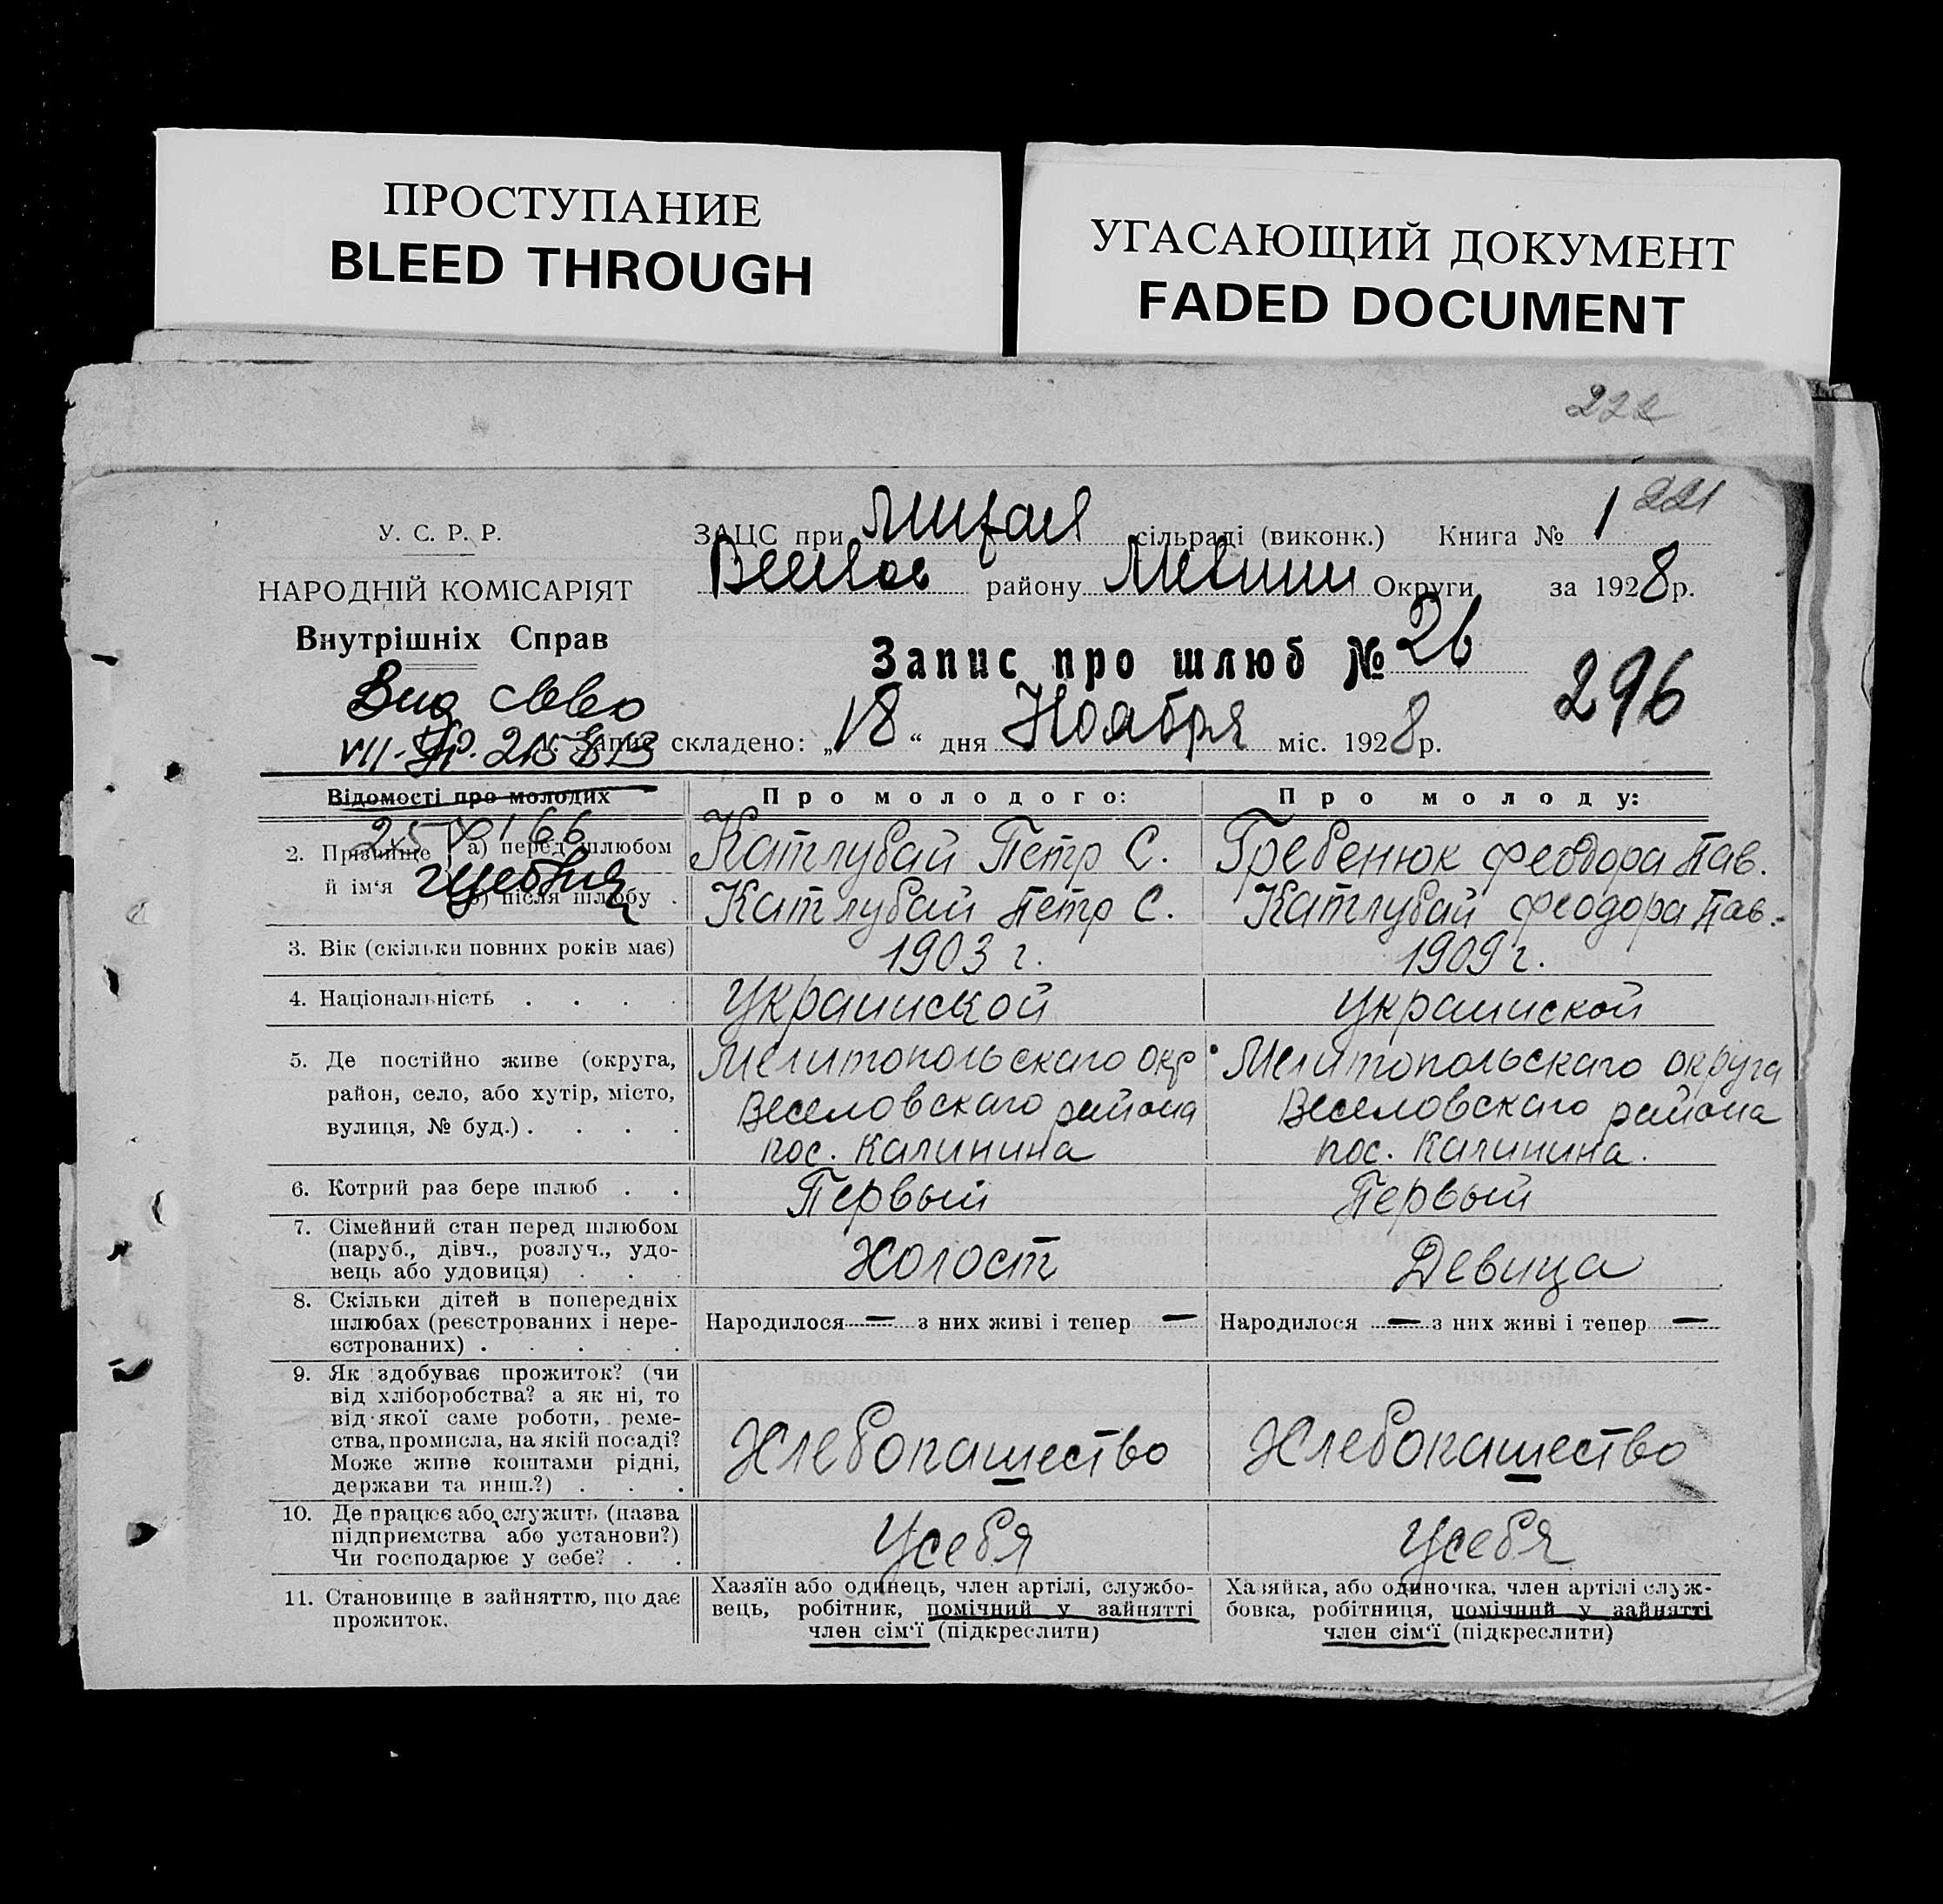 ПРОСТУПАНИЕ
BLEED THROUGH
УГАСАЮЩИЙ ДОКУМЕНТ
FADED DOCUMENT
222
221
У. С. Р. Р.
НАРОДНІЙ КОМІСАРІЯТ
Внутрішніх Справ
ЗАЦС при сільраді (виконк.) Книга № 1
району Округи за 1928 р.
Запис про шлюб № 26
296
Запис складено: „18“ дня Ноября міс. 1928 р.
Відомості про молодих
Про молодого:
Про молоду:
2. Прізвище й ім‘я
а) перед шлюбом
Катлубай Петр С.
Гребенюк Феодора Пав.
б) після шлюбу .
Катлубай Петр С.
Катлубай Феодора Пав.
3. Вік (скільки повних років має)
1903 г.
1909 г.
4. Національність . . . .
Украинской
Украинской
5. Де постійно живе (округа,
район, село, або хутір, місто,
вулиця, № буд.) . . . .
Мелитопольскаго окр
Веселовскаго района
пос. Калинина
Мелитопольскаго округа
Веселовскаго района
пос. Калинина.
6. Котрий раз бере шлюб . .
Первый
Первый
7. Сімейний стан перед шлюбом
(паруб., дівч., розлуч., удо-
вець або удовиця) . . .
Холост
Девица
8. Скільки дітей в попередніх
шлюбах (реєстрованих і нере-
єстрованих) . . . . .
Народилося — з них живі і тепер —
Народилося — з них живі і тепер —
9. Як здобуває прожиток? (чи
від хліборобства? а як ні, то
від якої саме роботи, реме-
ства, промисла, на якій посаді?
Може живе коштами рідні,
держави та инш.?) . . .
Хлебопашество
Хлебопашество
10. Де працює або служить (назва
підприємства або установи?)
Чи господарює у себе? . .
У себя
У себя
11. Становище в зайняттю, що дає
прожиток.
Хазяїн або одинець, член артілі, службо-
вець, робітник, помічний у зайнятті
член сім‘ї (підкреслити)
Хазяйка, або одиночка, член артілі служ-
бовка, робітниця, помічний у зайнятті
член сім‘ї (підкреслити)